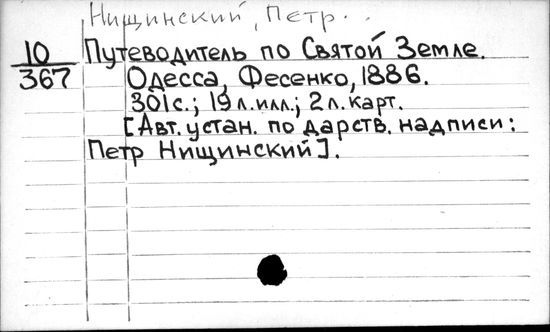 Нищинский, Петр.
10 Путеводитель по Святой Земле.
367 Одесса, Фесенко, 1886.
301с.; 19л.илл.; 2л.карт.
[Авт. устан. по дарств. надписи:
Петр Нищинский].